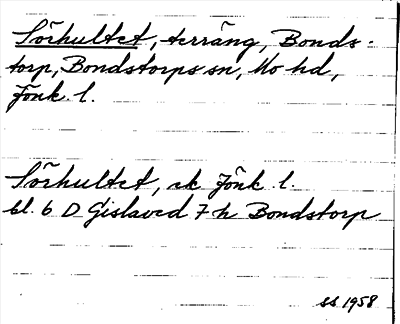 Sörhultet, terräng, Bonds-
torp, Bondstorps sn, Mo hd,
Jönk. l.
Sörhultet, ek Jönk. l.
bl. 6 D Gislaved 7 h Bondstorp
SS 1958